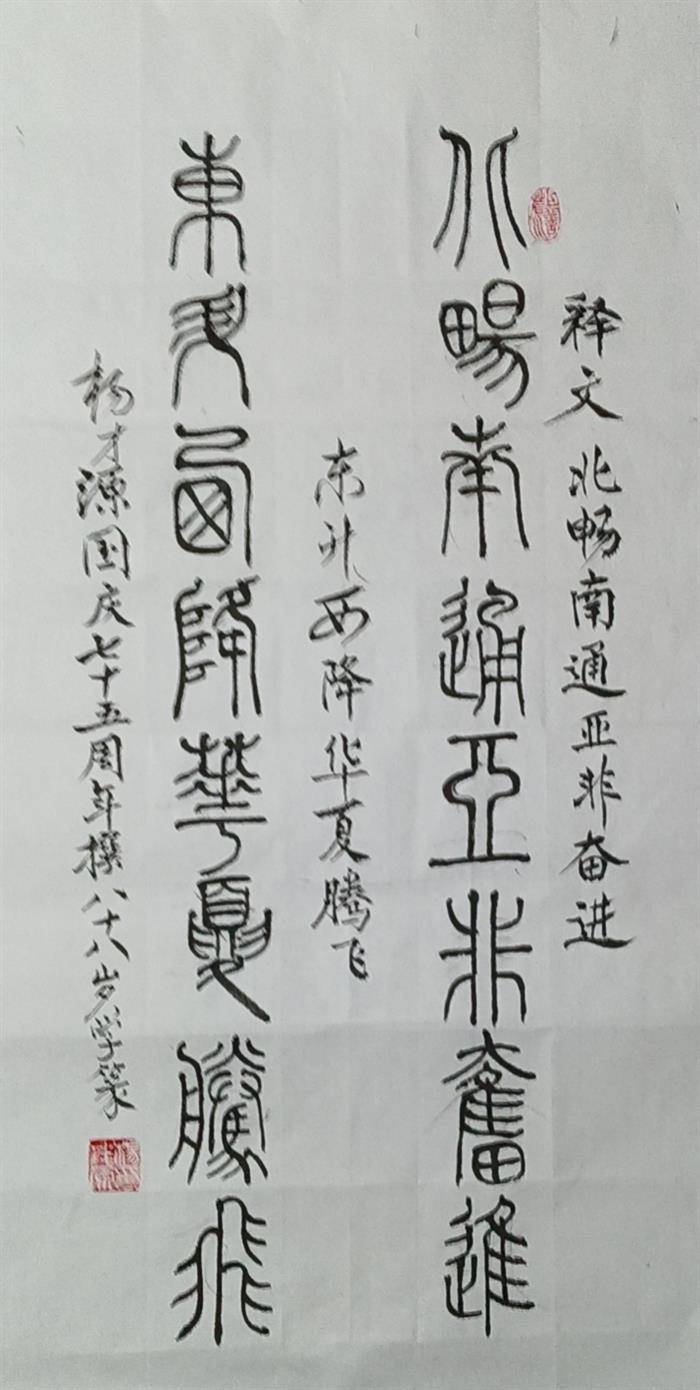 释文 北畅南通亚非奋进
北暢南通亞非奮進
东升西降华夏腾飞
東升西降華夏騰飛
杨才源国庆七十五周年撰八十八岁学篆